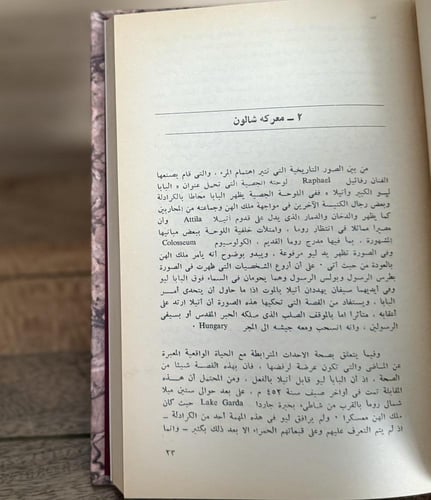 ٢ ـ معركه شالون
من بين الصور التاريخية التي تثير اهتمام المرء ، والتي قام بصنعها
الفنان رفائيل Raphael لوحته الجصية التي تحمل عنوان « البابا
ليو الكبير وأتيلا » ففي اللوحة الجصية يظهر البابا محاطا بالكرادلة
وبعض رجال الكنيسة الآخرين في مواجهة ملك الهن وجماعته من المحاربين
كما يظهر والدخان والدمار الذي يدل على قدوم أتيلا Attila وأن
مصيرا مماثلا في انتظار روما ، وامتلأت خلفية اللوحة ببعض مبانيها
المشهورة ، بما فيها مدرج روما القديم ، الكولوسيوم Colosseum
وفي الصورة تظهر يد ليو مرفوعة ، ويبدو بوضوح أنه يأمر ملك الهن
بالعودة من حيث أتى ، على أن أروع الشخصيات التي ظهرت في الصورة
بطرس الرسول وبولس الرسول وهما يحومان في السماء فوق البابا ليو
وفي أيديهما سيفان يهددان أتيلا بالموت اذا ما حاول أن يتحدى أمر
البابا ، ويستفاد من القصة التي تحكيها هذه الصورة أن أتيلا ارتد على
أعقابه ، متأثرا اما بالموقف الصلب الذي سلكه الحبر المقدس أو بسيفى
الرسولين ، وأنه انسحب ومعه جيشه الى المجر Hungary .
وفيما يتعلق بصحة الاحداث المترابطة مع الحياة الواقعية المعبرة
عن الماضي والتي تكون عرضة لرفضها ، فان بهذه القصة شيئا من
الصحة ، اذ أن البابا ليو قابل أتيلا بالفعل ، ومن المحتمل أن هذه
المقابلة تمت في أواخر صيف سنة ٤٥٢ م ، على بعد حوالى ستين ميلا
شمال روما بالقرب من شاطىء بحيرة جاردا Lake Garda حيث كان
ملك الهن معسكرا ، ولم يرافق ليو في هذه المهمة أحد من الكرادلة ـ
اذ لم يتم التعرف عليهم وعلى قبعاتهم الحمراء الا بعد ذلك بكثير ـ وانما
٢٣